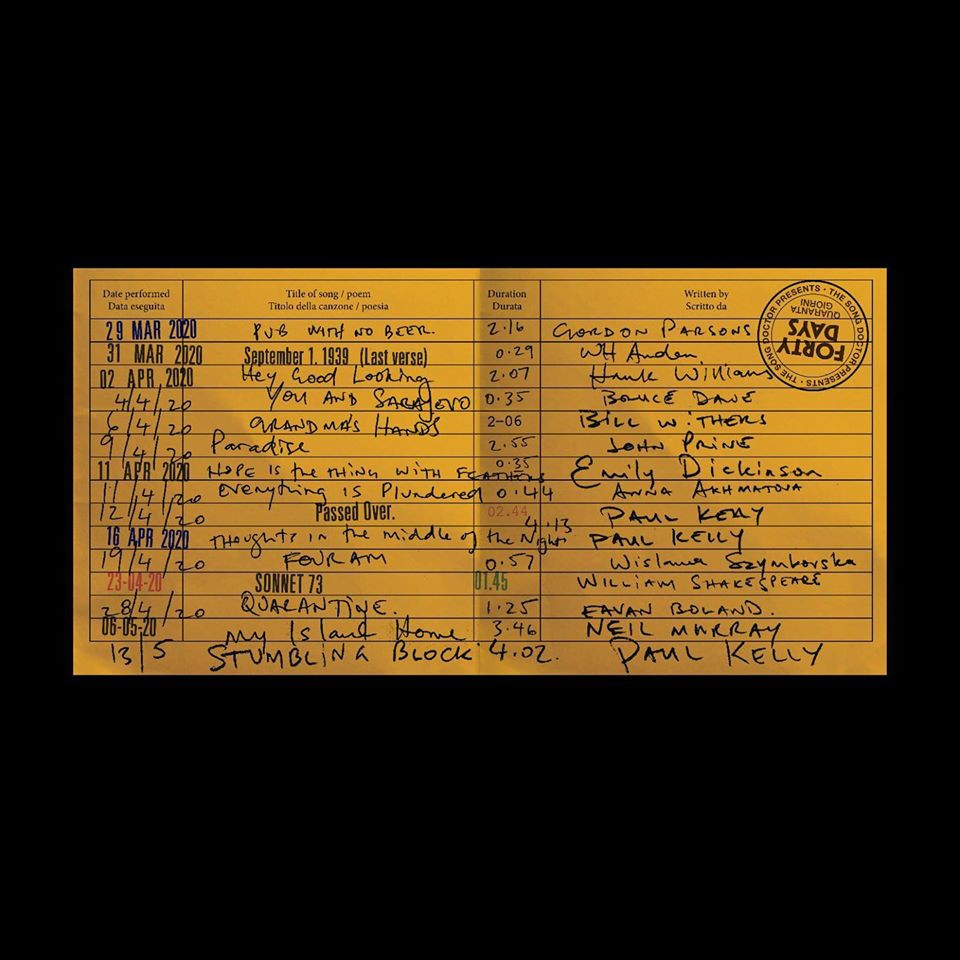 Date performed Title of song / poem Duration Written by
Data eseguita Titolo della canzone / poesia Durata Scritto da
THE SONG DOCTOR PRESENTS · THE SONG DOCTOR PRESENTS ·
FORTY DAYS
QUARANTA GIORNI
29 MAR 2020 PUB WITH NO BEER. 2.16 GORDON PARSONS
31 MAR 2020 September 1. 1939 (Last verse) 0.29 WH Auden
02 APR 2020 Hey Good Looking 2.07 Hank Williams
4/4/20 YOU AND SARAJEVO 0.35 BRUCE DAWE
6/4/20 GRANDMA'S HANDS 2-06 BILL WITHERS
9/4/20 Paradise 2.55 JOHN PRINE
11 APR 2020 HOPE IS the THING WITH FEATHERS 0.35 Emily Dickinson
11/4/20 Everything IS Plundered 0.44 ANNA AKHMATOVA
12/4/20 Passed Over. 02.44 PAUL KELLY
16 APR 2020 Thoughts in the Middle of the Night 4.13 PAUL KELLY
19/4/20 FOUR AM 0.57 Wislawa Szymborska
23-04-20 SONNET 73 01.45 WILLIAM SHAKESPEARE
28/4/20 QUARANTINE. 1.25 EAVAN BOLAND.
06-05-20 My Island Home 3.46 NEIL MURRAY
13/5 STUMBLING BLOCK 4.02. PAUL KELLY